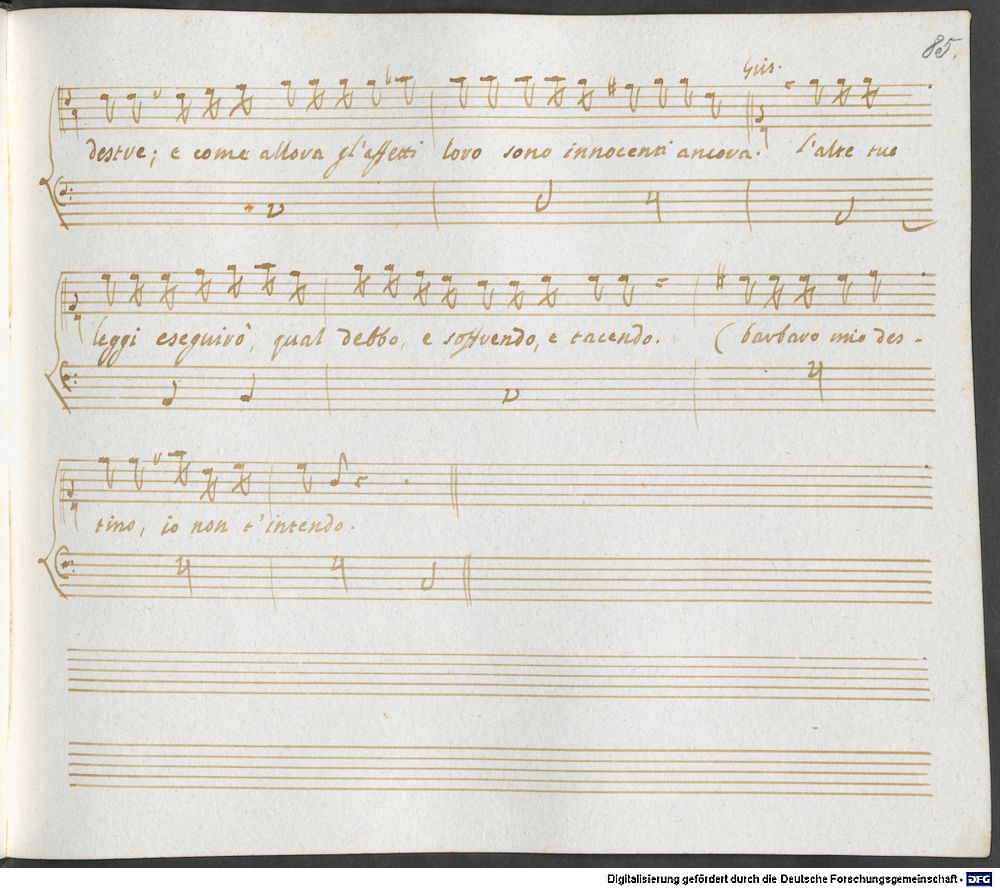 85.
Gris.
destre; e come allora gl'affetti loro sono innocenti ancora. l'alte tue
leggi eseguirò, qual debbo, e soffrendo, e tacendo. (barbaro mio des-
tino, io non t'intendo.
Digitalisierung gefördert durch die Deutsche Forschungsgemeinschaft - DFG